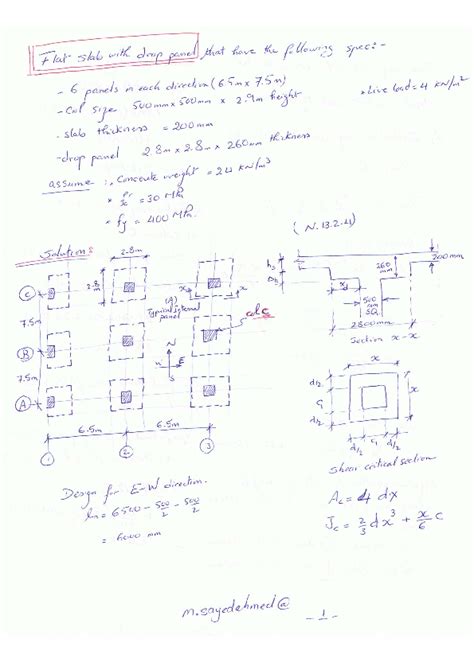 Flat slab with drop panel that have the following spec:-
- 6 panels in each direction (6.5m x 7.5m)
- Col size 500mm x 500mm x 2.9m height
* Live load = 4 KN/m²
- slab thickness = 200mm
- drop panel 2.8m x 2.8m x 260mm thickness
assume : . Concrete weight = 24 KN/m³
* = 30 MPa
* fy = 400 MPa.
(N.13.2.4)
Solution:
2.8m
2.8m
C
7.5m
B
7.5m
A
(A)
Typical internal panel
x
x
col C
N
E
S
6.5m
6.5m
1
2
3
260 mm
200mm
500 mm SQ.
2800mm
Section x-x
x
d/2
C1
d/2
d/2
C1
d/2
Shear critical section
Ac = 4 dx
Jc = 2/3 dx³ + x/6 c
Design for E-W direction.
ln = 6500 - 500/2 - 500/2
= 6000 mm
m.sayedahmed@
-1-